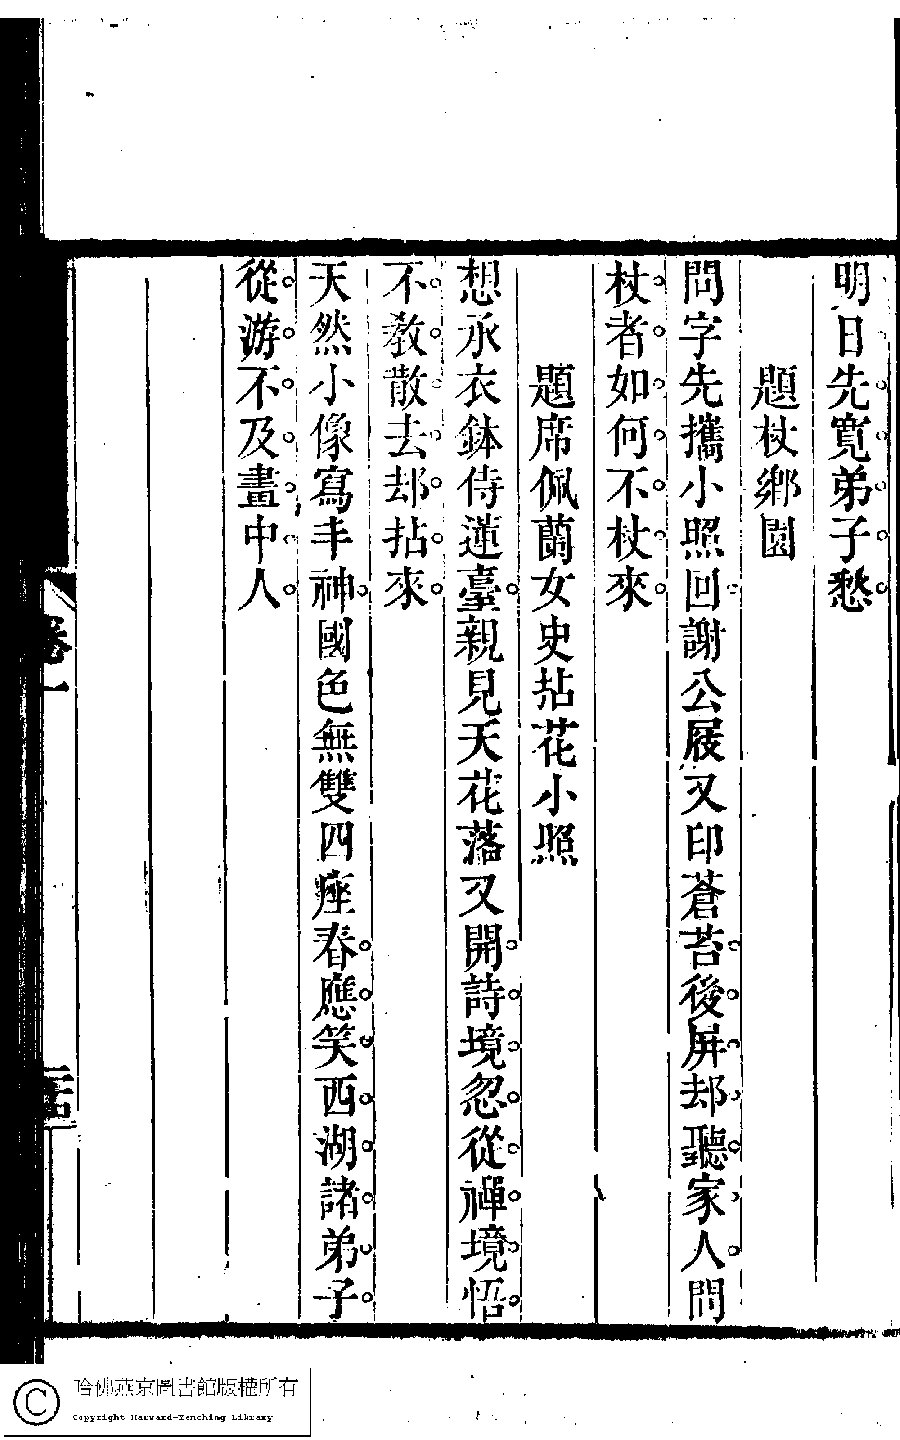 明日先寬弟子愁
題杖鄉園
問字先攜小照回謝公屐又印蒼苔後屏却聽家人問
杖者如何不杖來
題席佩蘭女史拈花小照
想承衣鉢侍蓮臺親見天花落又開詩境忽從禪境悟
不教散去却拈來
天然小像寫丰神國色無雙四座春應笑西湖諸弟子
從游不及畫中人
卷一
哈佛燕京圖書館版權所有
Copyright Harvard-Yenching Library